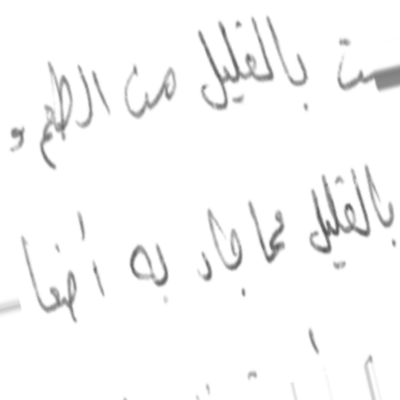 بالقليل من الطعم و
بالقليل مما جاد به أضعا